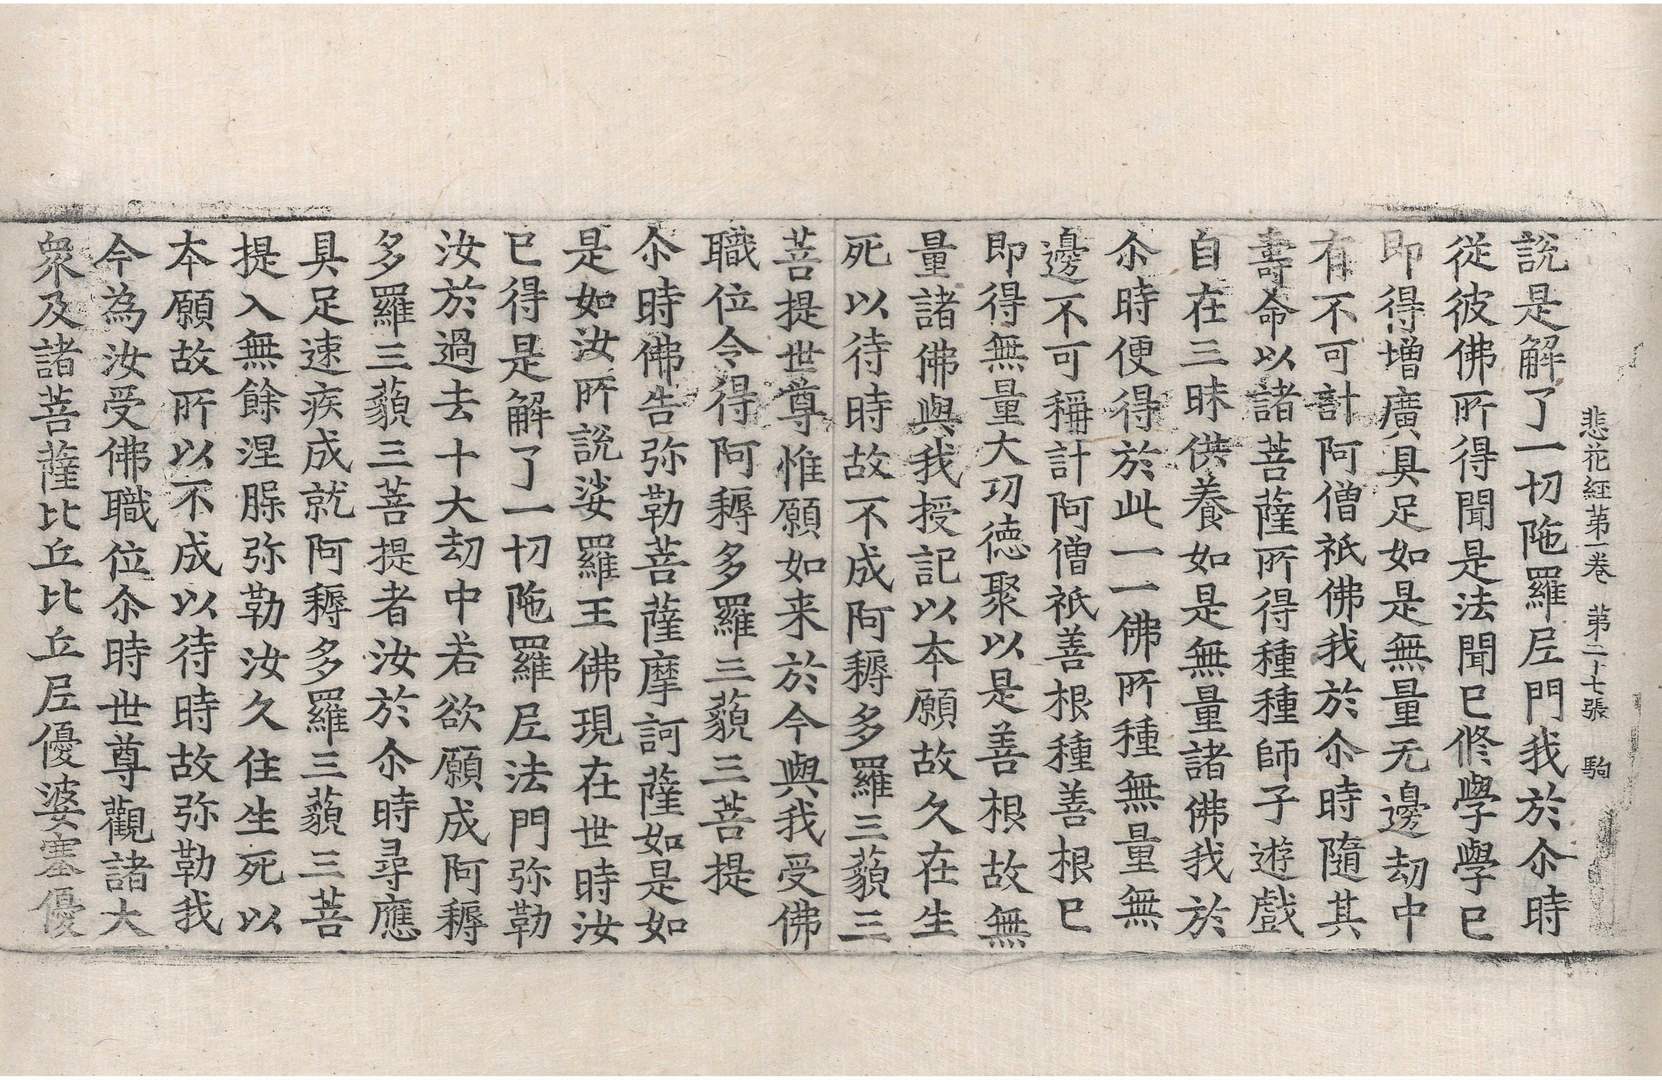 悲花経第一卷 第二十七張 駒
說是解了一切陁羅尼門我於尒時
從彼佛所得聞是法聞已修學學已
即得增廣具足如是無量无邊劫中
有不可計阿僧祇佛我於尒時隨其
壽命以諸菩薩所得種種師子遊戲
自在三昧供養如是無量諸佛我於
尒時便得於此一一佛所種無量無
邊不可稱計阿僧祇善根種善根已
即得無量大功德聚以是善根故無
量諸佛與我授記以本願故久在生
死以待時故不成阿耨多羅三藐三
菩提世尊惟願如来於今與我受佛
職位令得阿耨多羅三藐三菩提
尒時佛告弥勒菩薩摩訶薩如是如
是如汝所說娑羅王佛現在世時汝
已得是解了一切陁羅尼法門弥勒
汝於過去十大劫中若欲願成阿耨
多羅三藐三菩提者汝於尒時尋應
具足速疾成就阿耨多羅三藐三菩
提入無餘涅槃弥勒汝久住生死以
本願故所以不成以待時故弥勒我
今為汝受佛職位尒時世尊觀諸大
衆及諸菩薩比丘比丘尼優婆塞優